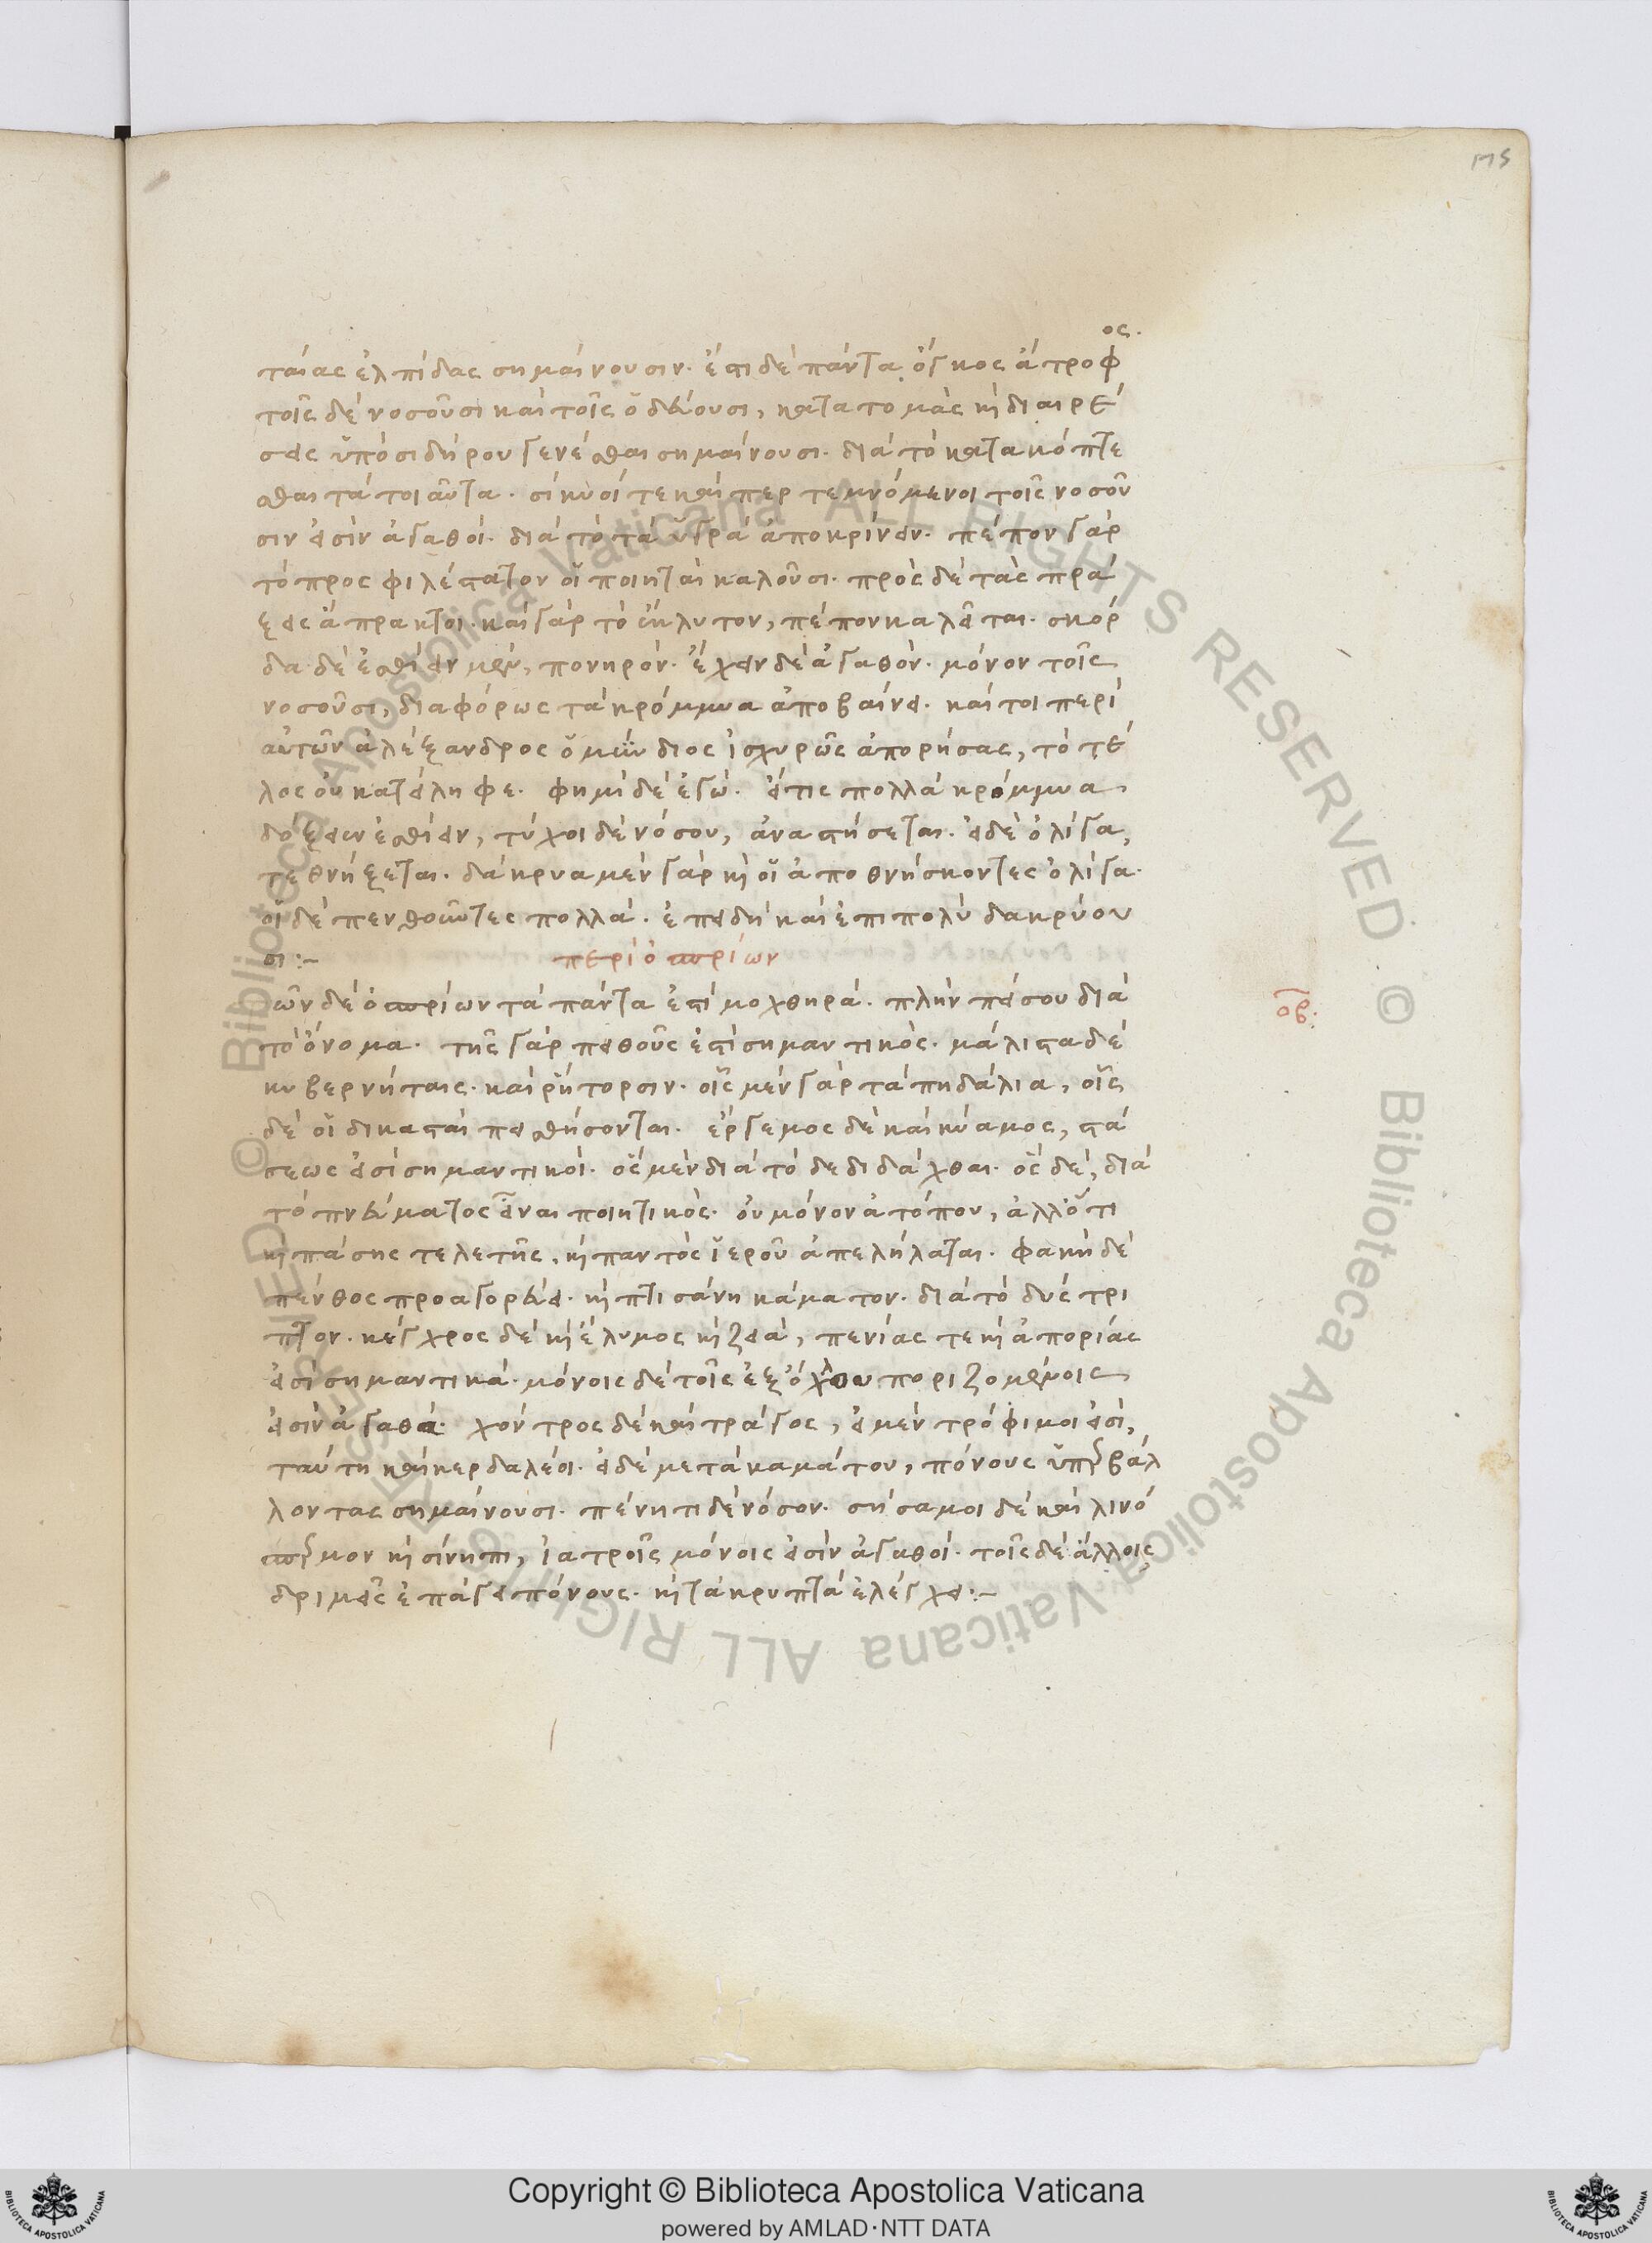 μς
ος.
ταίας ἐλπίδας σημαίνουσιν. ἐστὶ δὲ πάντα ὄγκος ἄτροφ
τοῖς δὲ νοσοῦσι καὶ τοῖς ὁδεύουσι, κατατομὰς καὶ διαιρέ
σεις ὑπὸ σιδήρου γενέσθαι σημαίνουσι. διὰ τὸ κατακόπτε
σθαι τὰ τοιαῦτα. σίκυοί τε καὶ περ τεμνόμενοι τοῖς νοσοῦ
σιν εἰσὶν ἀγαθοί. διὰ τὸ τὰ ὑγρὰ ἀποκρίνειν. πέπον γὰρ
τὸ προσφιλέστατον οἱ ποιηταὶ καλοῦσι. πρὸς δὲ τὰς πρά
ξεις ἄπρακτοι. καὶ γὰρ τὸ ἔκλυτον, πέπον καλεῖται. σκόρ
δα δὲ ἐσθίειν μὲν, πονηρόν. ἔχειν δὲ ἀγαθόν. μόνον τοῖς
νοσοῦσι, διαφόρως τὰ κρόμμυα ἀποβαίνει. καίτοι περὶ
αὐτῶν ἀλέξανδρος ὁ μύνδιος ἰσχυρῶς ἀπορήσας, τὸ τέ
λος οὐ κατείληφε. φημὶ δὲ ἐγώ. εἴ τις πολλὰ κρόμμυα
δόξειεν ἐσθίειν, τύχοι δὲ νόσου, ἀναστήσεται. εἰ δὲ ὀλίγα,
τεθνήξεται. δάκρυα μὲν γὰρ καὶ οἱ ἀποθνήσκοντες ὀλίγα.
οἱ δὲ πενθοῦντες πολλά. ἐπειδὴ καὶ ἐπιπολὺ δακρύου
σι:-
περὶ ὀσπρίων
οβ.
τῶν δὲ ὀσπρίων τὰ πάντα ἐστὶ μοχθηρά. πλὴν πείσου διὰ
τὸ ὄνομα. τῆς γὰρ πειθοῦς ἐστὶ σημαντικός. μάλιστα δὲ
κυβερνήταις. καὶ ῥήτορσιν. οἷς μὲν γὰρ τὰ πηδάλια, οἷς
δὲ οἱ δικασταὶ πεισθήσονται. ἔργεμος δὲ καὶ κύαμος, στά
σεως εἰσὶ σημαντικοί. ὃς μὲν διὰ τὸ δεδιδάχθαι. ὃς δὲ, διὰ
τὸ πνεύματος εἶναι ποιητικός. οὐ μόνον ἀτόπου, ἀλλ' ὅτι
καὶ πάσης τελετῆς, καὶ παντὸς ἱεροῦ ἀπελήλαται. φακῆ δὲ
πένθος προαγορεύει. καὶ πτισάνη κάματον. διὰ τὸ δυς τρι
πτον. κέγχρος δὲ καὶ ἔλυμος καὶ ζειά, πενίας τε καὶ ἀπορίας
εἰσὶ σημαντικά. μόνοις δὲ τοῖς ἐξ ὄχλου ποριζομένοις
εἰσὶν ἀγαθά. χόντρος δὲ καὶ τράγος, εἰ μὲν τρόφιμοι εἰσὶ,
ταύτη καὶ κερδαλέοι. εἰ δὲ μετὰ καμάτου, πόνους ὑπερβάλ
λοντας σημαίνουσι. πένητι δὲ νόσον. σήσαμοι δὲ καὶ λινό
σπερμον καὶ σίνηπι, ἰατροῖς μόνοις εἰσὶν ἀγαθοί. τοῖς δὲ ἄλλοις
δριμεῖς ἐπάγει πόνους. καὶ τὰ κρυπτὰ ἐλέγχει:-
© Biblioteca Apostolica Vaticana ALL RIGHTS RESERVED © Biblioteca Apostolica Vaticana ALL RIGHTS RESERVED
Copyright © Biblioteca Apostolica Vaticana
powered by AMLAD·NTT DATA
BIBLIOTECA APOSTOLICA VATICANA
BIBLIOTECA APOSTOLICA VATICANA